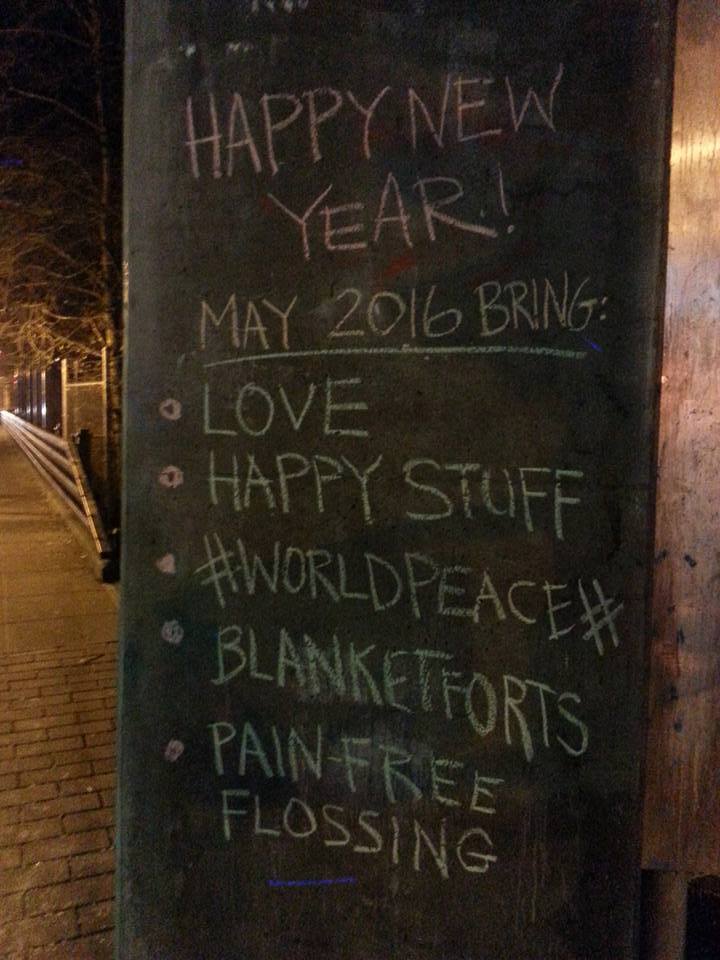 HAPPY NEW
YEAR!
MAY 2016 BRING:
LOVE
HAPPY STUFF
#WORLDPEACE#
BLANKETFORTS
PAIN-FREE
FLOSSING